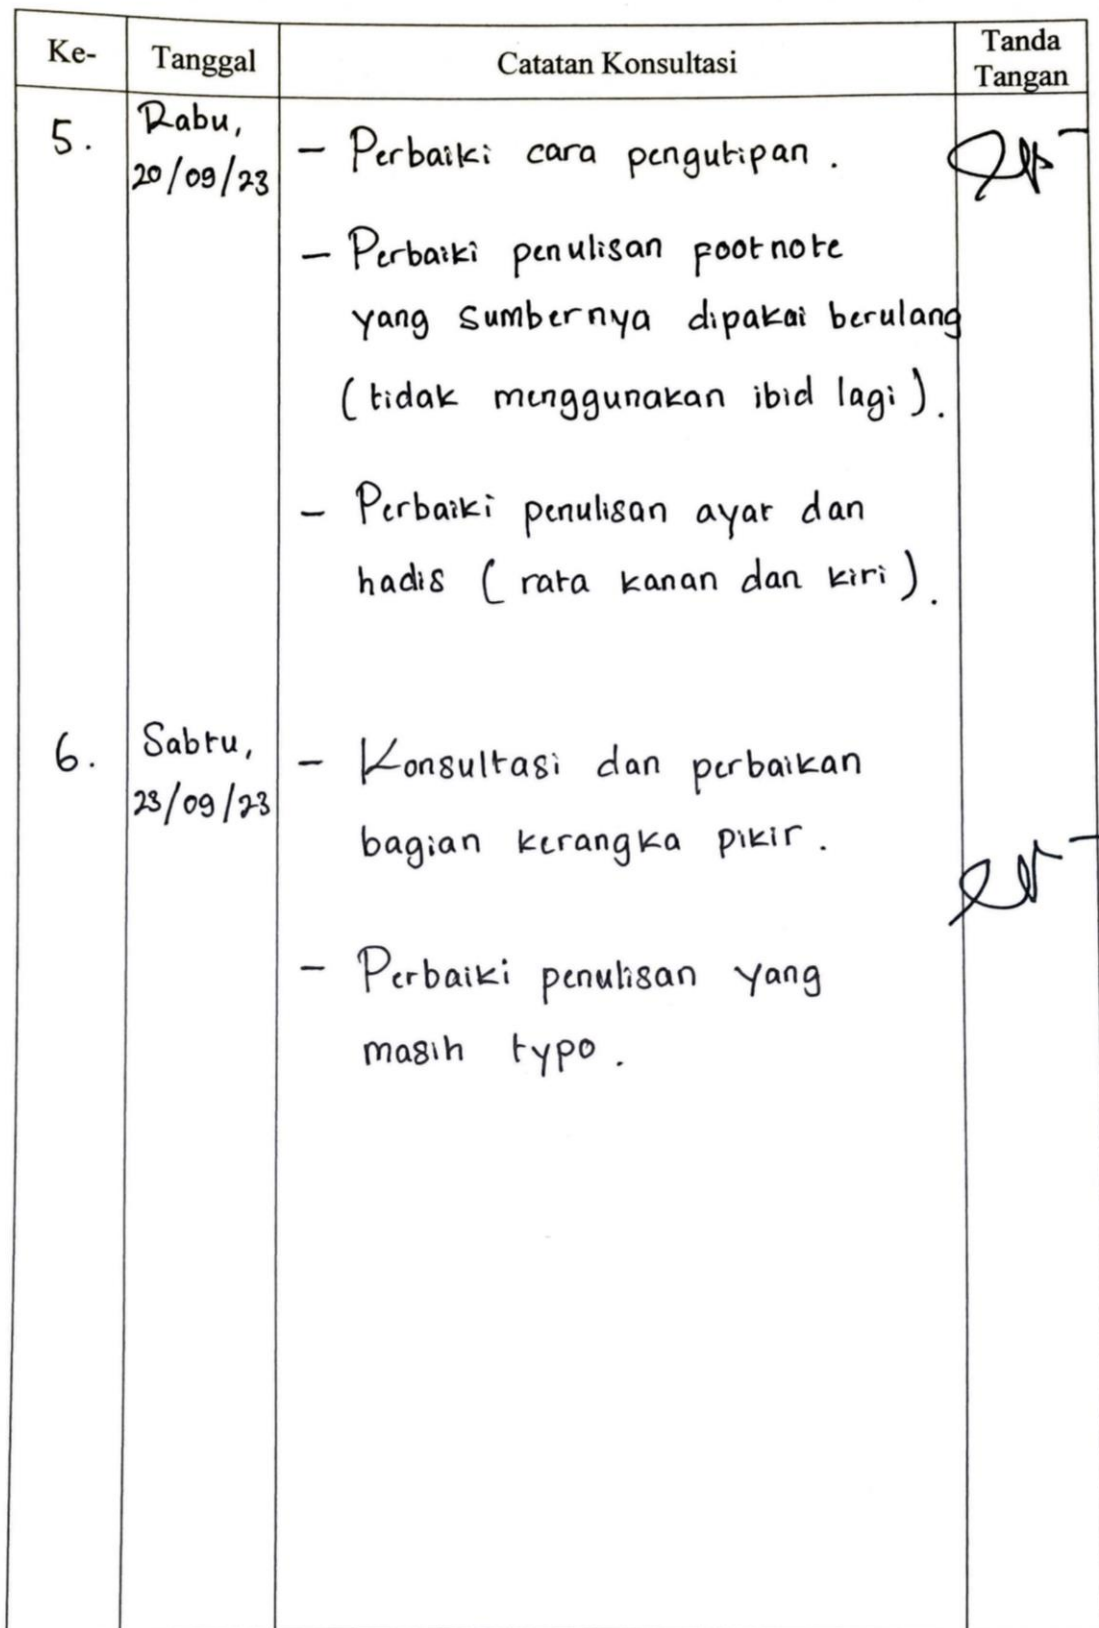 Ke- Tanggal Catatan Konsultasi Tanda Tangan
5. Rabu, 20/09/23
- Perbaiki cara pengutipan.
- Perbaiki penulisan footnote
yang sumbernya dipakai berulang
(tidak menggunakan ibid lagi).
- Perbaiki penulisan ayat dan
hadis (rata kanan dan kiri).
6. Sabtu, 23/09/23
- Konsultasi dan perbaikan
bagian kerangka pikir.
- Perbaiki penulisan yang
masih typo.